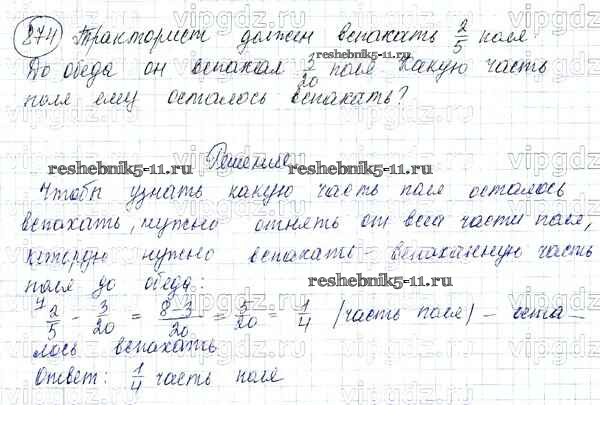 874 Тракторист должен вспахать 2/5 поля
До обеда он вспахал 3/20 поля. Какую часть
поля ему осталось вспахать?
Решение
reshebnik5-11.ru
reshebnik5-11.ru
reshebnik5-11.ru
Чтобы узнать какую часть поля осталось
вспахать, нужно отнять от всей части поля,
которую нужно вспахать - вспаханную часть
поля до обеда:
reshebnik5-11.ru
4 2/5 - 3/20 = 8-3/20 = 5/20 = 1/4 (часть поля) - оста-
лось вспахать
Ответ: 1/4 часть поля